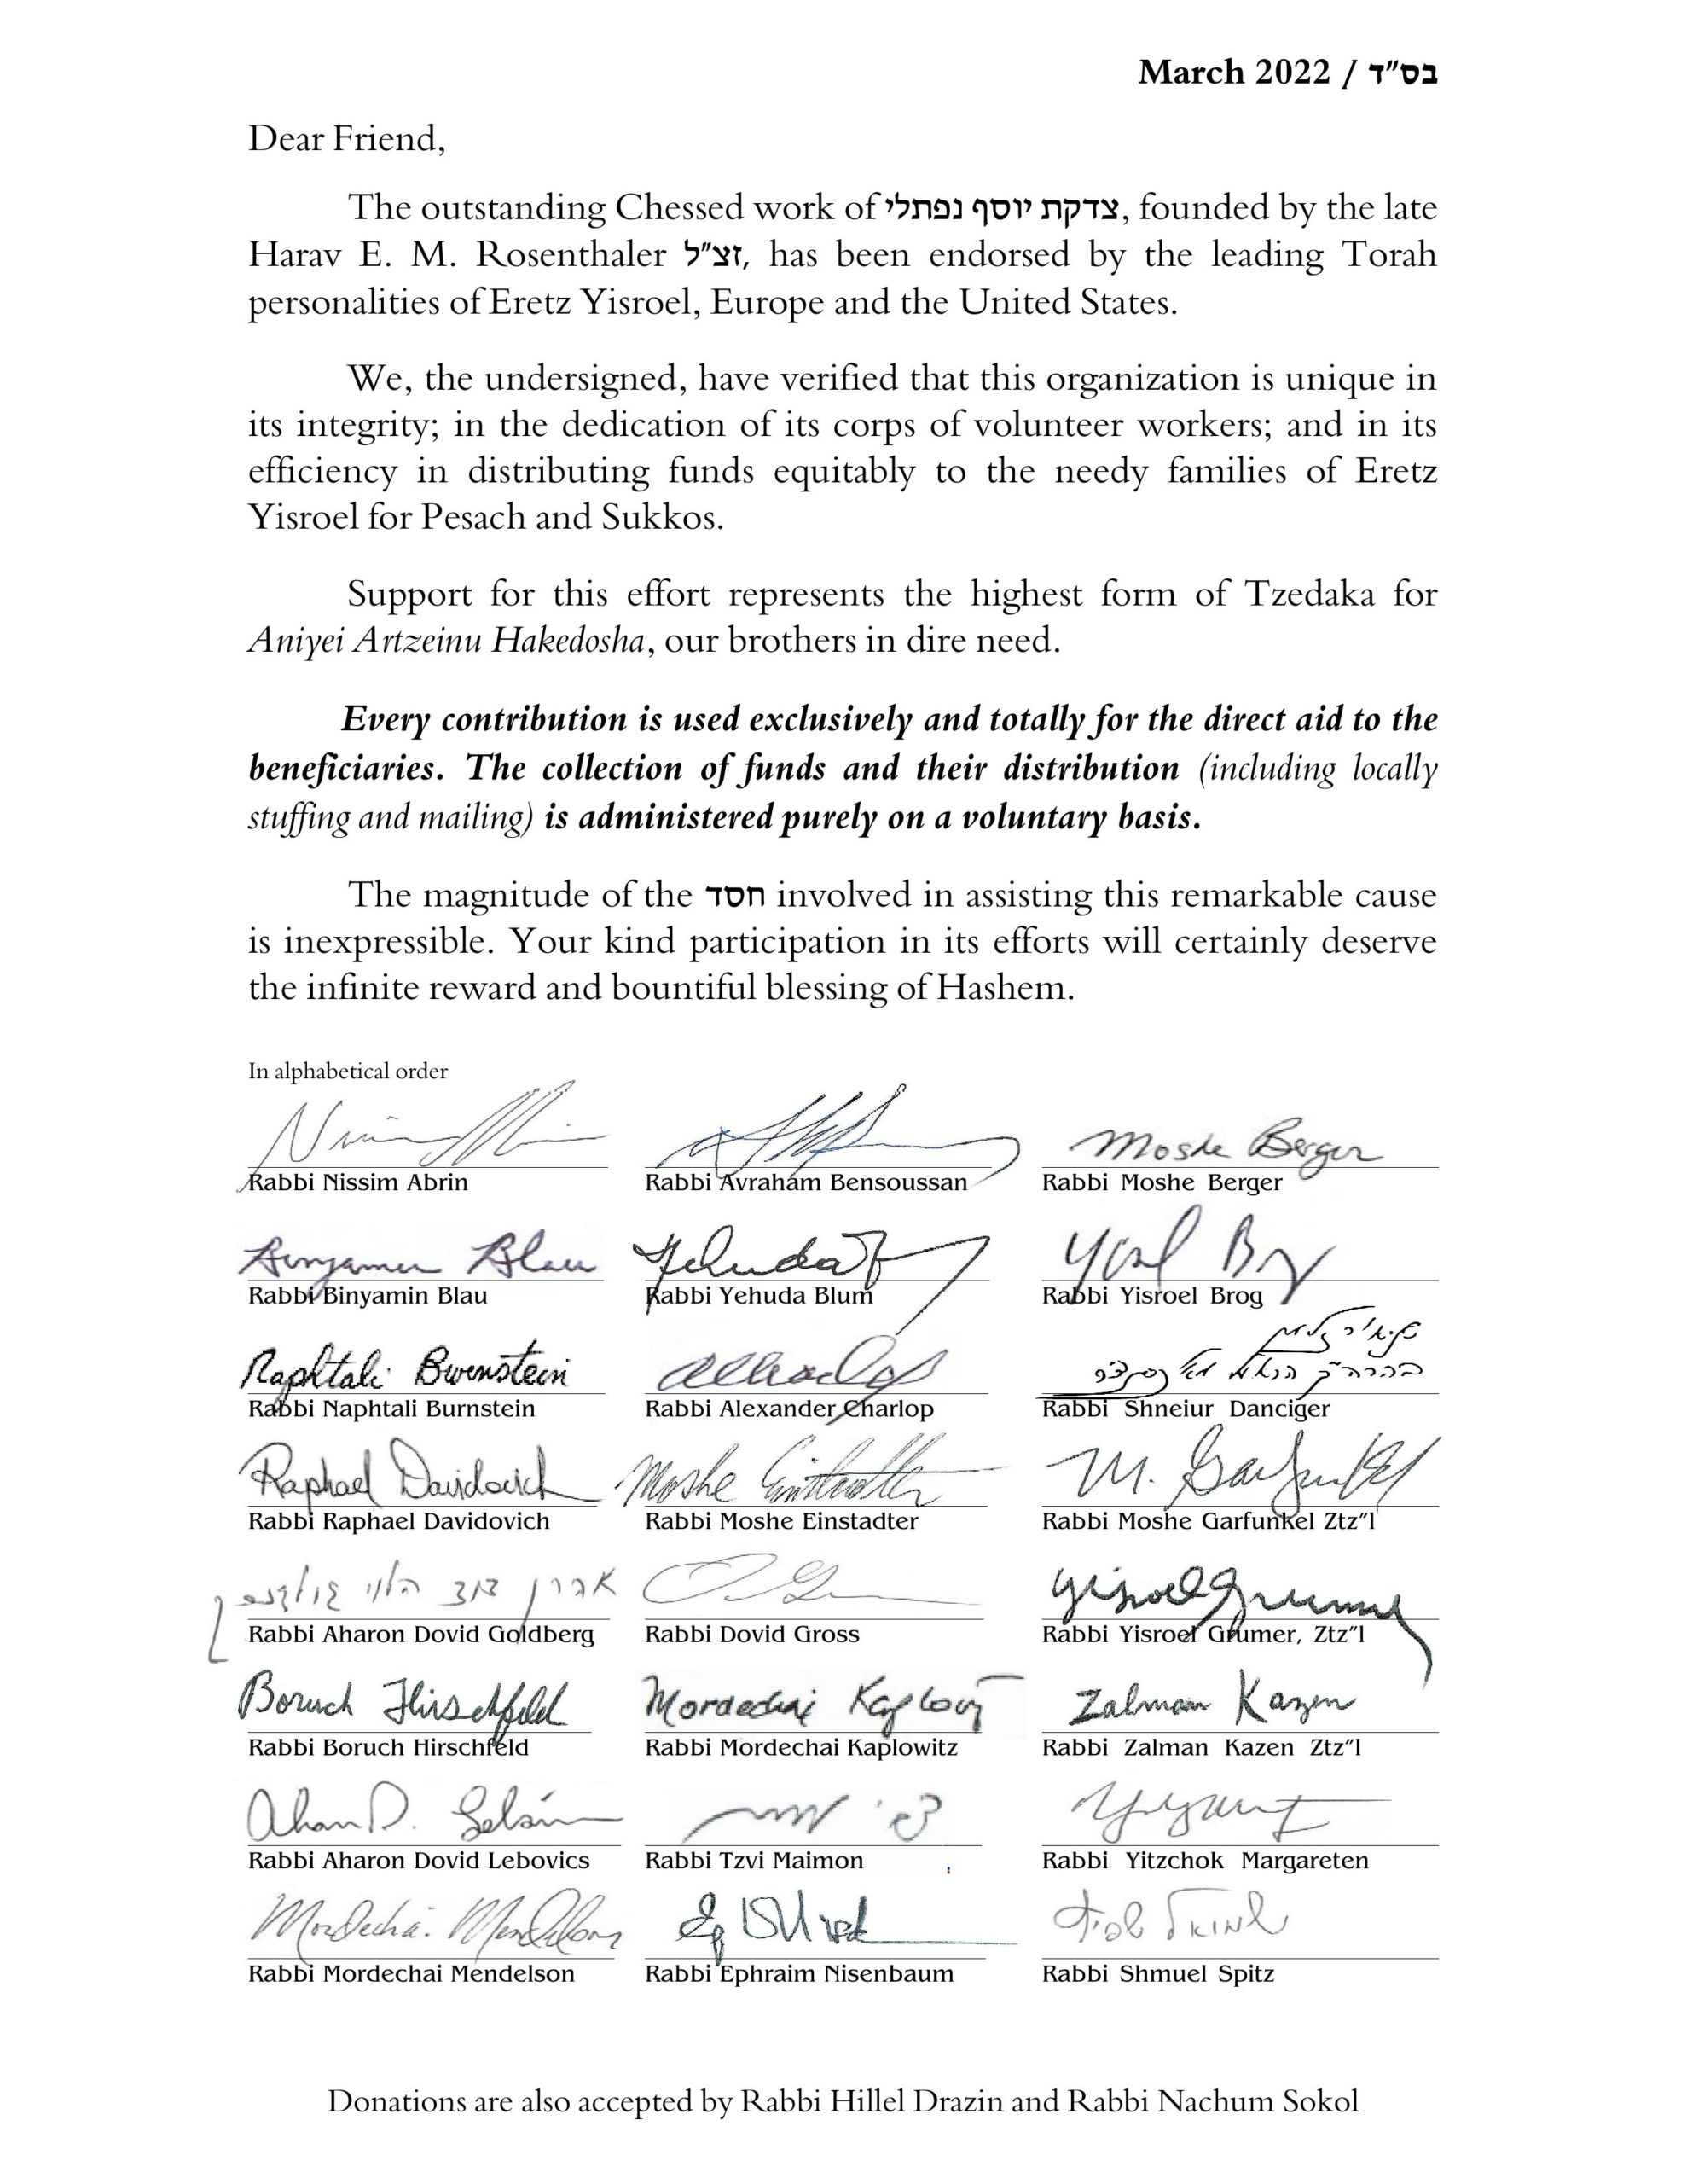 March 2022 / בס"ד
Dear Friend,
The outstanding Chessed work of צדקת יוסף נפתלי, founded by the late
Harav E. M. Rosenthaler זצ"ל, has been endorsed by the leading Torah
personalities of Eretz Yisroel, Europe and the United States.
We, the undersigned, have verified that this organization is unique in
its integrity; in the dedication of its corps of volunteer workers; and in its
efficiency in distributing funds equitably to the needy families of Eretz
Yisroel for Pesach and Sukkos.
Support for this effort represents the highest form of Tzedaka for
Aniyei Artzeinu Hakedosha, our brothers in dire need.
Every contribution is used exclusively and totally for the direct aid to the
beneficiaries. The collection of funds and their distribution (including locally
stuffing and mailing) is administered purely on a voluntary basis.
The magnitude of the חסד involved in assisting this remarkable cause
is inexpressible. Your kind participation in its efforts will certainly deserve
the infinite reward and bountiful blessing of Hashem.
In alphabetical order
Moshe Berger
Rabbi Nissim Abrin Rabbi Avraham Bensoussan Rabbi Moshe Berger
Binyamin Blau Yehuda
Rabbi Binyamin Blau Rabbi Yehuda Blum Rabbi Yisroel Brog
Naphtali Burnstein
Rabbi Naphtali Burnstein Rabbi Alexander Charlop Rabbi Shneiur Danciger
Raphael Davidovich Moshe Einstadter M. Garfunkel
Rabbi Raphael Davidovich Rabbi Moshe Einstadter Rabbi Moshe Garfunkel Ztz"l
אהרן דוד הלוי Yisroel Grumer
Rabbi Aharon Dovid Goldberg Rabbi Dovid Gross Rabbi Yisroel Grumer, Ztz"l
Boruch Hirschfeld Mordechai Kaplowitz Zalman Kazen
Rabbi Boruch Hirschfeld Rabbi Mordechai Kaplowitz Rabbi Zalman Kazen Ztz"l
Rabbi Aharon Dovid Lebovics Rabbi Tzvi Maimon Rabbi Yitzchok Margareten
Mordechai Mendelson
Rabbi Mordechai Mendelson Rabbi Ephraim Nisenbaum Rabbi Shmuel Spitz
Donations are also accepted by Rabbi Hillel Drazin and Rabbi Nachum Sokol